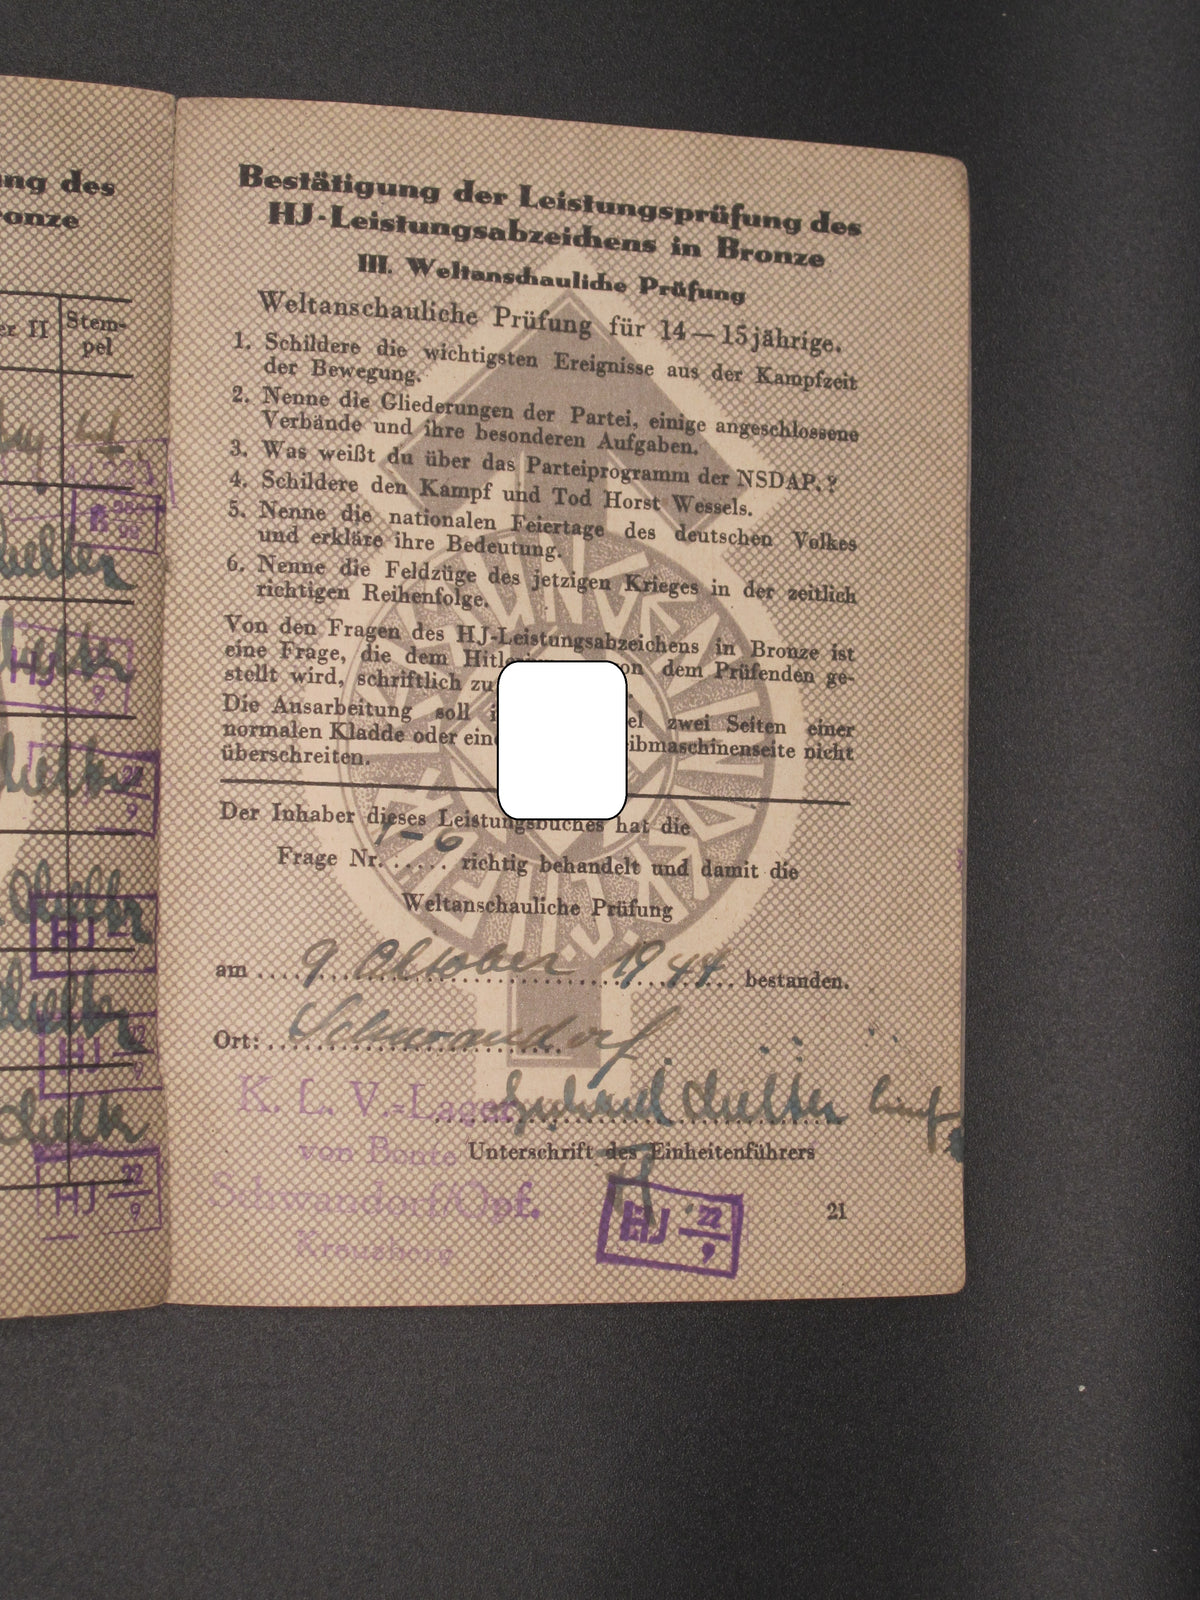 ng des
ronze
er II
Stem-
pel
HJ
9
22
9
HJ
HJ 22
9
HJ 22
9
Bestätigung der Leistungsprüfung des
HJ-Leistungsabzeichens in Bronze
III. Weltanschauliche Prüfung
Weltanschauliche Prüfung für 14—15jährige.
1. Schildere die wichtigsten Ereignisse aus der Kampfzeit
der Bewegung.
2. Nenne die Gliederungen der Partei, einige angeschlossene
Verbände und ihre besonderen Aufgaben.
3. Was weißt du über das Parteiprogramm der NSDAP.?
4. Schildere den Kampf und Tod Horst Wessels.
5. Nenne die nationalen Feiertage des deutschen Volkes
und erkläre ihre Bedeutung.
6. Nenne die Feldzüge des jetzigen Krieges in der zeitlich
richtigen Reihenfolge.
Von den Fragen des HJ-Leistungsabzeichens in Bronze ist
eine Frage, die dem Hitle on dem Prüfenden ge-
stellt wird, schriftlich zu
Die Ausarbeitung soll i el zwei Seiten einer
normalen Kladde oder ein ibmaschinenseite nicht
überschreiten.
Der Inhaber dieses Leistungsbuches hat die
Frage Nr. 1-6 richtig behandelt und damit die
Weltanschauliche Prüfung
am 9. Oktober 1944 bestanden.
Ort: Schwandorf
K. L. V.-Lager
von Bonte
Unterschrift des Einheitenführers
Schwandorf/Opf.
Kreuzberg
HJ 22
9
21